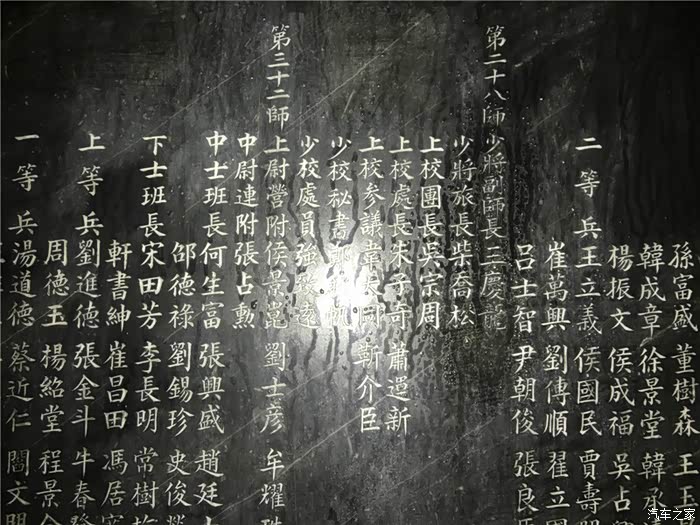 孫富盛 董樹森 王玉
韓成章 徐景堂 韓承
楊振文 侯成福 吳占
二等兵王立義 侯國民 賈壽
崔萬興 劉傳順 翟立
呂士智 尹朝俊 張良
第二十八師少將副師長王慶龍
少將旅長柴喬松
上校團長吳宗周
上校處長朱子奇 蕭運新
上校參議 靳介臣
少校祕書
少校處員強
第三十二師上尉營附侯景崑 劉士彥 牟耀
中尉連附張占勲
中士班長何生富 張興盛 趙廷
邵德祿 劉錫珍 史俊
下士班長宋田芳 李長明 常樹
軒書紳 崔昌田 馮居
上等兵劉進德 張金斗 牛春
周德玉 楊紹堂 程景
一等兵湯道德 蔡近仁 閻文
汽车之家